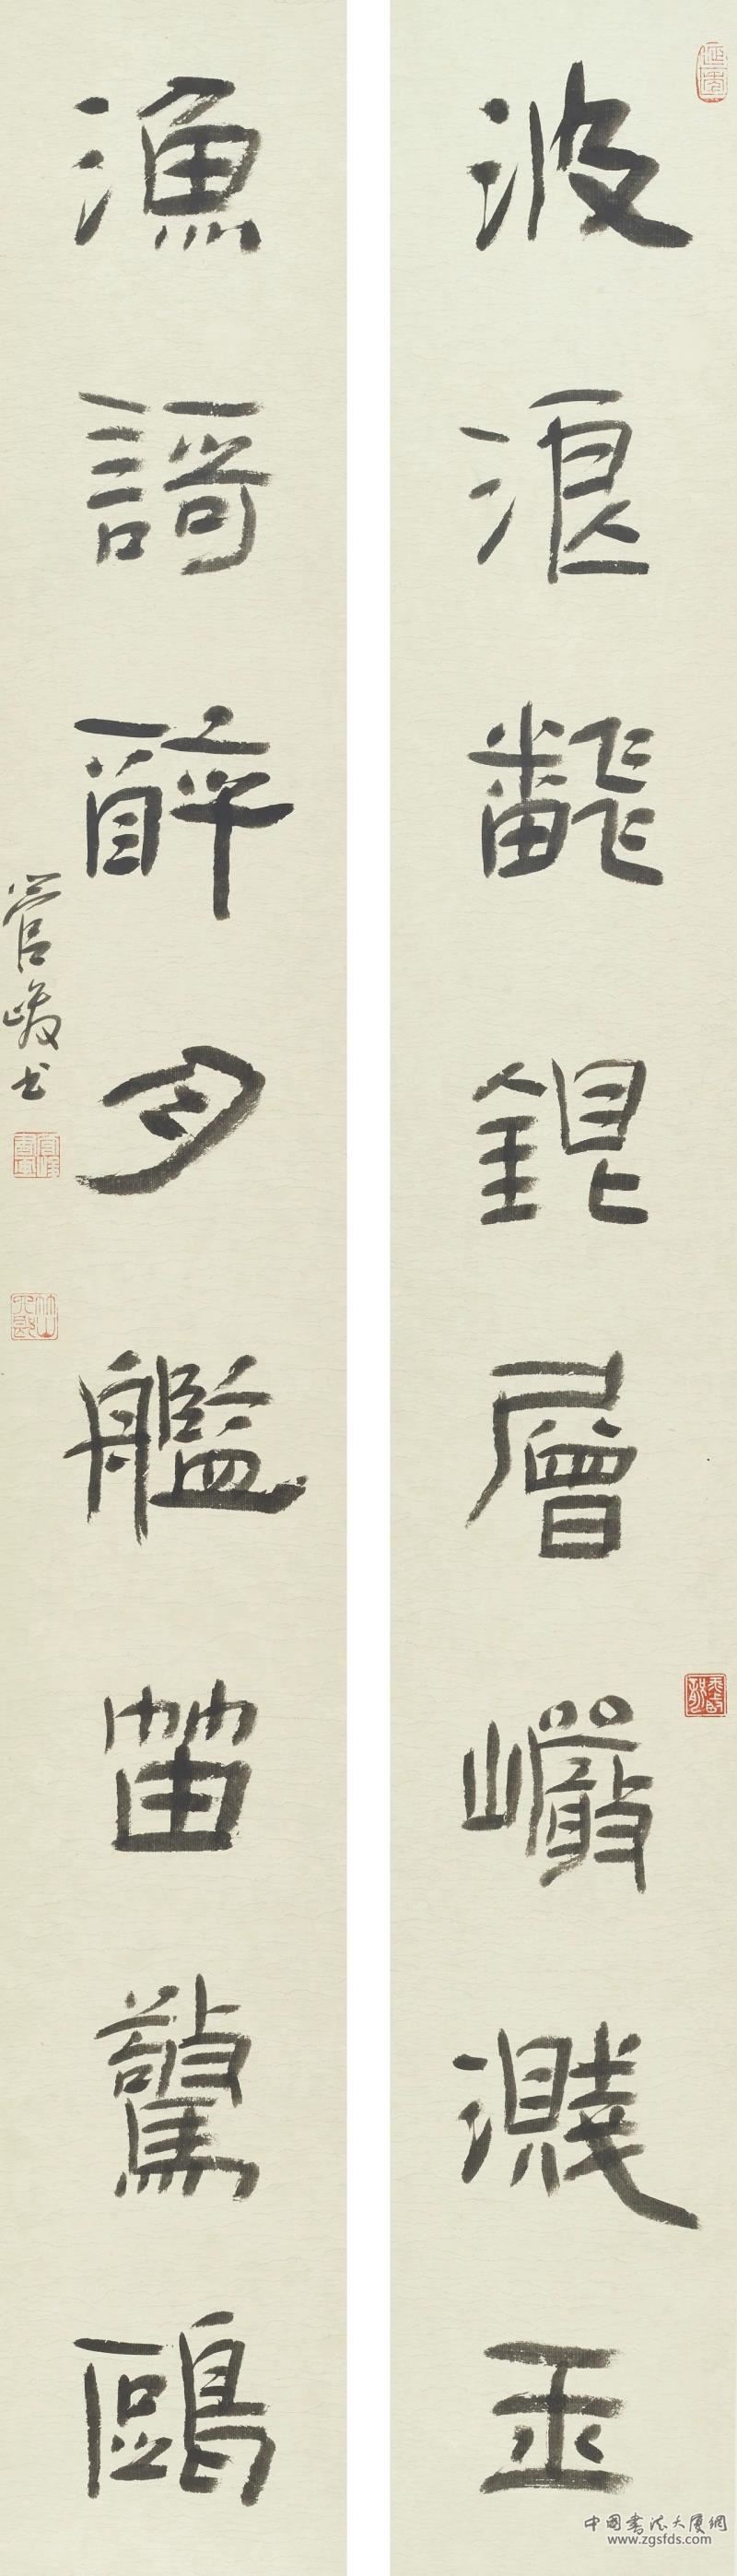 波浪翻銀層巖濺玉
漁謌醉月艦笛驚鷗
管峻书
中国书法大厦網
www.zgsfds.com